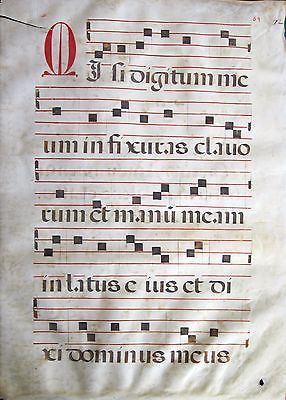 MIsi digitum me
um in fixuras clauo
rum et manū meam
in latus e ius et di
xi dominus meus